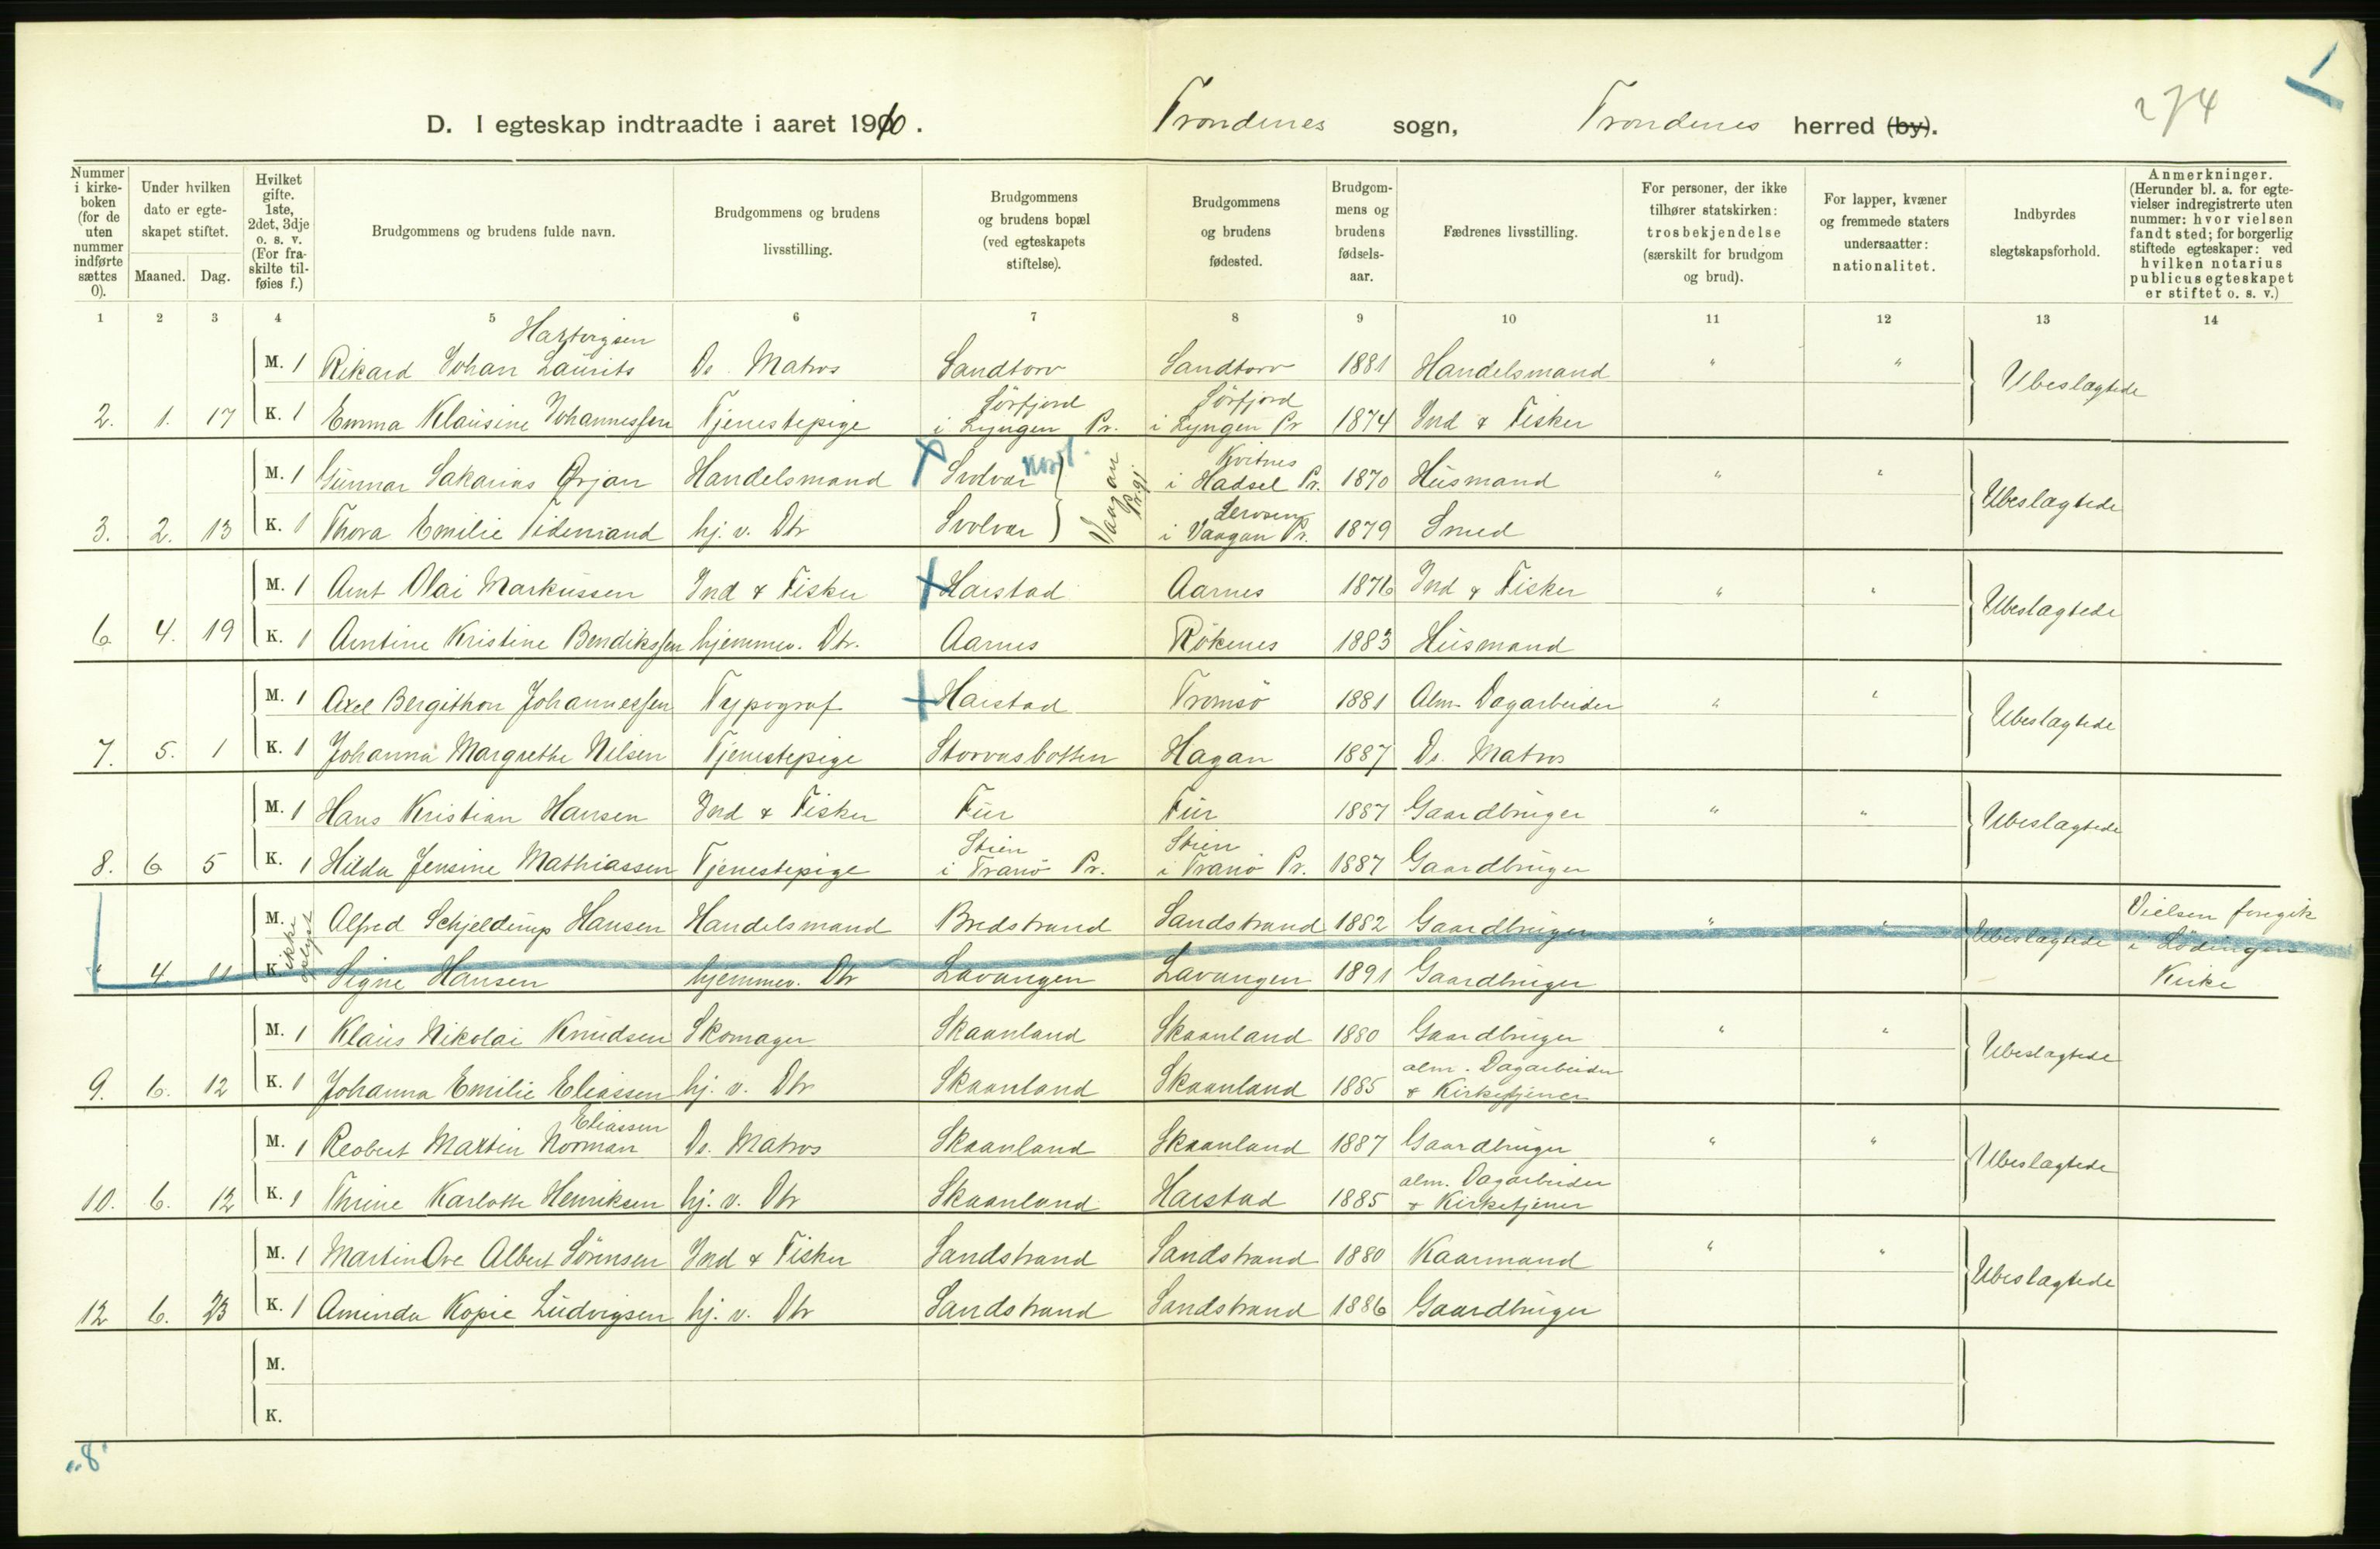 1
274
D. I egteskap indtraadte i aaret 1910. Trondenes sogn, Trondenes herred (by).
Nummer i kirke-boken (for de uten nummer indførte sættes 0).
Under hvilken dato er egte-skapet stiftet.
Maaned. Dag.
Hvilket gifte. 1ste, 2det, 3dje o. s. v. (For fra-skilte til-føies f.)
Brudgommens og brudens fulde navn.
Brudgommens og brudens livsstilling.
Brudgommens og brudens bopæl (ved egteskapets stiftelse).
Brudgommens og brudens fødested.
Brudgom-mens og brudens fødsels-aar.
Fædrenes livsstilling.
For personer, der ikke tilhører statskirken: trosbekjendelse (særskilt for brudgom og brud).
For lapper, kvæner og fremmede staters undersaatter: nationalitet.
Indbyrdes slegtskapsforhold.
Anmerkninger. (Herunder bl. a. for egte-vielser indregistrerte uten nummer: hvor vielsen fandt sted; for borgerlig stiftede egteskaper: ved hvilken notarius publicus egteskapet er stiftet o. s. v.)
1 2 3 4 5 6 7 8 9 10 11 12 13 14
Hartvigsen
M. 1 Rikard Johan Laurits Ds. Matros Sandtorv Sandtorv 1881 Handelsmand " " Ubeslagtede
Sörfjord Sörfjord
2. 1. 17 K. 1 Emma Klausine Johannessen Tjenestepige i Lyngen Pr. i Lyngen Pr 1874 Ind & Fisker
Kvitnes
M. 1 Gunnar Sakarias Ørjan Handelsmand Svolvær Nord. Vaagan Prgj. i Hadsel Pr. 1870 Husmand " " Ubeslagtede
3. 2. 13 K. 1 Thora Emilie Tidemand hj. v. Dtr Svolvær i Vaagan Pr. 1879 Smed
M. 1 Arnt Olai Markussen Ind & Fisker Harstad Aarnes 1876 Ind & Fisker " " Ubeslagtede
6 4. 19 K. 1 Arntine Kristine Bendikssen hjemmev. Dtr. Aarnes Rökenes 1883 Husmand
M. 1 Axel Bergithon Johannessen Typograf Harstad Tromsö 1881 Alm. Dagarbeider " " Ubeslagtede
7. 5. 1 K. 1 Johanna Margrethe Nilsen Tjenestepige Storvasbotten Hagan 1887 Ds. Matros
M. 1 Hans Kristian Hansen Ind & Fisker Fur Fur 1887 Gaardbruger " " Ubeslagtede
Stien Stien
8. 6 5 K. 1 Hilda Jensine Mathiassen Tjenestepige i Tranö Pr. i Tranö Pr. 1887 Gaardbruger
M. ikke oplyst Alfred Schjelderup Hansen Handelsmand Bredstrand Sandstrand 1882 Gaardbruger " " Ubeslagtede Vielsen foregik i Lödingen Kirke
" 4. 11 K. Signe Hansen hjemmev. Dtr Lavangen Lavangen 1891 Gaardbruger
M. 1 Klaus Nikolai Knudsen Skomager Skaanland Skaanland 1880 Gaardbruger " " Ubeslagtede
alm. Dagarbeider
9. 6. 12 K. 1 Johanna Emilie Eliassen hj. v. Dtr Skaanland Skaanland 1885 & Kirketjener
Eliassen
M. 1 Reobert Martin Norman Ds. Matros Skaanland Skaanland 1887 Gaardbruger " " Ubeslagtede
alm. Dagarbeider
10. 6. 12 K. 1 Thrine Karlotte Henriksen hj. v. Dtr Skaanland Harstad 1885 & Kirketjener
M. 1 Martin Ove Albert Sörensen Ind & Fisker Sandstrand Sandstrand 1880 Kaarmand " " Ubeslagtede
12 6. 23 K. 1 Aminda Kopie Ludvigsen hj. v. Dtr Sandstrand Sandstrand 1886 Gaardbruger
M.
K.
"8"